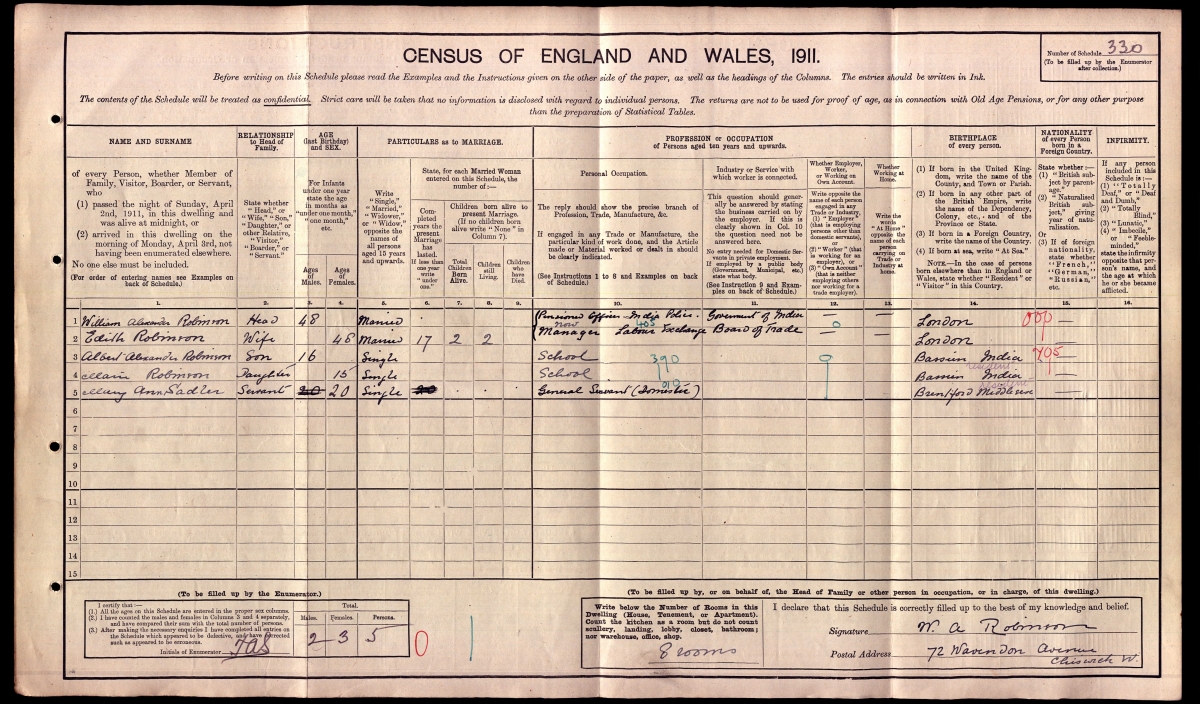 CENSUS OF ENGLAND AND WALES, 1911.
Number of Schedule 330
(To be filled up by the Enumerator after collection.)
Before writing on this Schedule please read the Examples and the Instructions given on the other side of the paper, as well as the headings of the Columns. The entries should be written in Ink.
The contents of the Schedule will be treated as confidential. Strict care will be taken that no information is disclosed with regard to individual persons. The returns are not to be used for proof of age, as in connection with Old Age Pensions, or for any other purpose
than the preparation of Statistical Tables.
NAME AND SURNAME
of every Person, whether Member of Family, Visitor, Boarder, or Servant, who
(1) passed the night of Sunday, April 2nd, 1911, in this dwelling and was alive at midnight, or
(2) arrived in this dwelling on the morning of Monday, April 3rd, not having been enumerated elsewhere.
No one else must be included.
(For order of entering names see Examples on back of Schedule.)
RELATIONSHIP to Head of Family.
State whether "Head," or "Wife," "Son," "Daughter," or other Relative, "Visitor," "Boarder," or "Servant."
AGE (last Birthday) and SEX.
For Infants under one year state the age in months as "under one month," "one month," etc.
Ages of Males.
Ages of Females.
PARTICULARS as to MARRIAGE.
Write "Single," "Married," "Widower," or "Widow," opposite the names of all persons aged 15 years and upwards.
State, for each Married Woman entered on this Schedule, the number of:—
Completed years the present Marriage has lasted. If less than one year write "under one."
Children born alive to present Marriage. (If no children born alive write "None" in Column 7).
Total Children Born Alive.
Children still Living.
Children who have Died.
PROFESSION or OCCUPATION
of Persons aged ten years and upwards.
Personal Occupation.
The reply should show the precise branch of Profession, Trade, Manufacture, &c.
If engaged in any Trade or Manufacture, the particular kind of work done, and the Article made or Material worked or dealt in should be clearly indicated.
(See Instructions 1 to 8 and Examples on back of Schedule.)
Industry or Service with which worker is connected.
This question should generally be answered by stating the business carried on by the employer. If this is clearly shown in Col. 10 the question need not be answered here.
No entry needed for Domestic Servants in private employment. If employed by a public body (Government, Municipal, etc.) state what body.
(See Instruction 9 and Examples on back of Schedule.)
Whether Employer, Worker, or Working on Own Account.
Write opposite the name of each person engaged in any Trade or Industry, (1) "Employer" (that is employing persons other than domestic servants), or (2) "Worker" (that is working for an employer), or (3) "Own Account" (that is neither employing others nor working for a trade employer).
Whether Working at Home.
Write the words "At Home" opposite the name of each person carrying on Trade or Industry at home.
BIRTHPLACE of every person.
(1) If born in the United Kingdom, write the name of the County, and Town or Parish.
(2) If born in any other part of the British Empire, write the name of the Dependency, Colony, etc., and of the Province or State.
(3) If born in a Foreign Country, write the name of the Country.
(4) If born at sea, write "At Sea."
NOTE.—In the case of persons born elsewhere than in England or Wales, state whether "Resident" or "Visitor" in this Country.
NATIONALITY of every Person born in a Foreign Country.
State whether:—
(1) "British subject by parentage."
(2) "Naturalised British subject," giving year of naturalisation.
Or
(3) If of foreign nationality, state whether "French," "German," "Russian," etc.
INFIRMITY.
If any person included in this Schedule is:—
(1) "Totally Deaf," or "Deaf and Dumb,"
(2) "Totally Blind,"
(3) "Lunatic,"
(4) "Imbecile," or "Feeble-minded,"
state the infirmity opposite that person's name, and the age at which he or she became afflicted.
1. 2. 3. 4. 5. 6. 7. 8. 9. 10. 11. 12. 13. 14. 15. 16.
1 William Alexander Robinson Head 48 Married — Pensioned Officer India Police. Government of India — London —
now Manager 405 Labour Exchange Board of Trade 0
2 Edith Robinson Wife 48 Married 17 2 2 London —
3 Albert Alexander Robinson Son 16 Single School 390 9 Bassein India —
resident
4 Marie Robinson Daughter 15 Single School Bassein India —
resident
5 Mary Ann Sadler Servant 20 20 Single 20 General Servant (Domestic) Brentford Middlesex —
6
7
8
9
10
11
12
13
14
15
(To be filled up by the Enumerator.)
I certify that:—
(1.) All the ages on this Schedule are entered in the proper sex columns.
(2.) I have counted the males and females in Columns 3 and 4 separately, and have compared their sum with the total number of persons.
(3.) After making the necessary enquiries I have completed all entries on the Schedule which appeared to be defective, and have corrected such as appeared to be erroneous.
Initials of Enumerator
Total.
Males. Females. Persons.
2 — 3 5
0 1
(To be filled up by, or on behalf of, the Head of Family or other person in occupation, or in charge, of this dwelling.)
Write below the Number of Rooms in this Dwelling (House, Tenement, or Apartment). Count the kitchen as a room but do not count scullery, landing, lobby, closet, bathroom; nor warehouse, office, shop.
8 rooms
I declare that this Schedule is correctly filled up to the best of my knowledge and belief.
Signature W. A Robinson
Postal Address 72 Wavendon Avenue
Chiswick W.